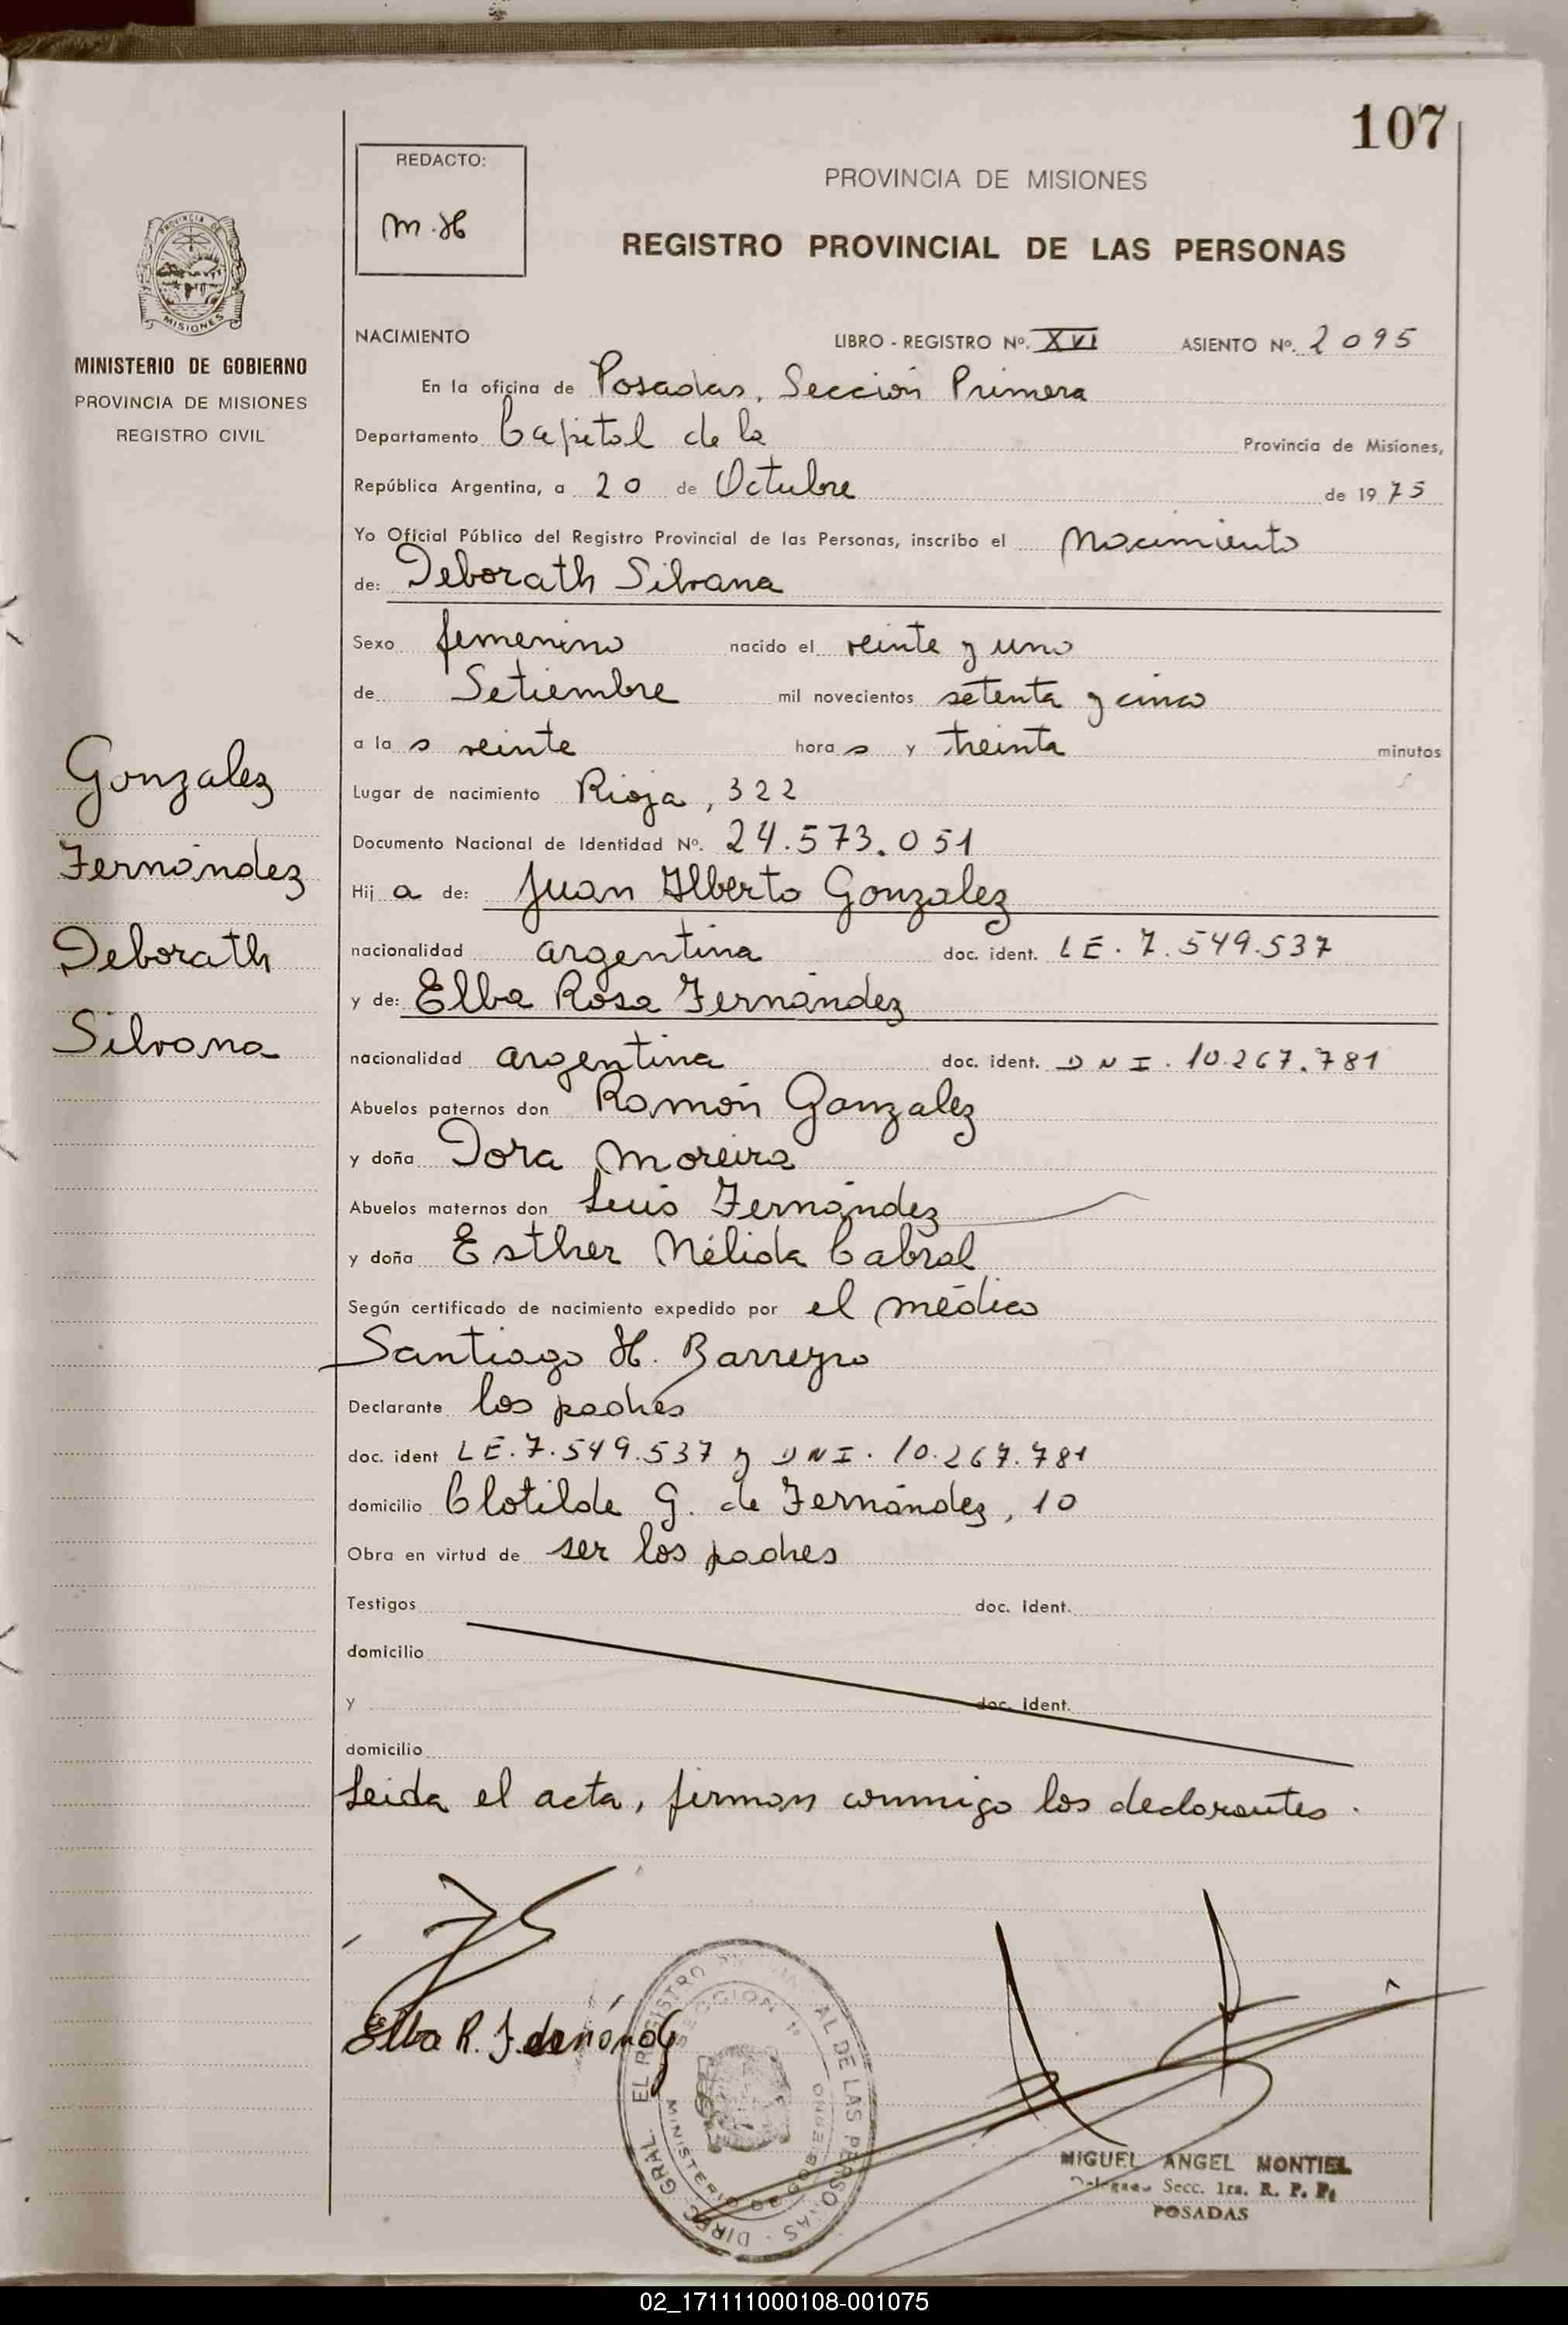 107
REDACTO:
M.H
PROVINCIA DE MISIONES
REGISTRO PROVINCIAL DE LAS PERSONAS
PROVINCIA DE
MISIONES
MINISTERIO DE GOBIERNO
PROVINCIA DE MISIONES
REGISTRO CIVIL
Gonzalez
Fernández
Deborath
Silvana
NACIMIENTO LIBRO - REGISTRO Nº. XVI ASIENTO Nº. 2095
En la oficina de Posadas, Sección Primera
Departamento Capital de la Provincia de Misiones,
República Argentina, a 20 de Octubre de 1975
Yo Oficial Público del Registro Provincial de las Personas, inscribo el Nacimiento
de: Deborath Silvana
Sexo femenino nacido el veinte y uno
de Setiembre mil novecientos setenta y cinco
a la s veinte hora s y treinta minutos
Lugar de nacimiento Rioja, 322
Documento Nacional de Identidad Nº. 24.573.051
Hij a de: Juan Alberto Gonzalez
nacionalidad argentina doc. ident. LE. 7.549.537
y de: Elba Rosa Fernández
nacionalidad argentina doc. ident. DNI. 10.267.781
Abuelos paternos don Ramón Gonzalez
y doña Dora Moreira
Abuelos maternos don Luis Fernández
y doña Esther Nélida Cabral
Según certificado de nacimiento expedido por el médico
Santiago H. Barreyro
Declarante los padres
doc. ident LE. 7.549.537 y DNI. 10.267.781
domicilio Clotilde G. de Fernández, 10
Obra en virtud de ser los padres
Testigos doc. ident.
domicilio
y doc. ident.
domicilio
Leida el acta, firman conmigo los declarantes.
Elba R. F. de
DIREC. GRAL. EL REGISTRO AL DE LAS PERSONAS
SECCION 1ª
MINISTERIO DE GOBIERNO
MIGUEL ANGEL MONTIEL
Delegado Secc. 1ra. R. P. P.
POSADAS
02_171111000108-001075